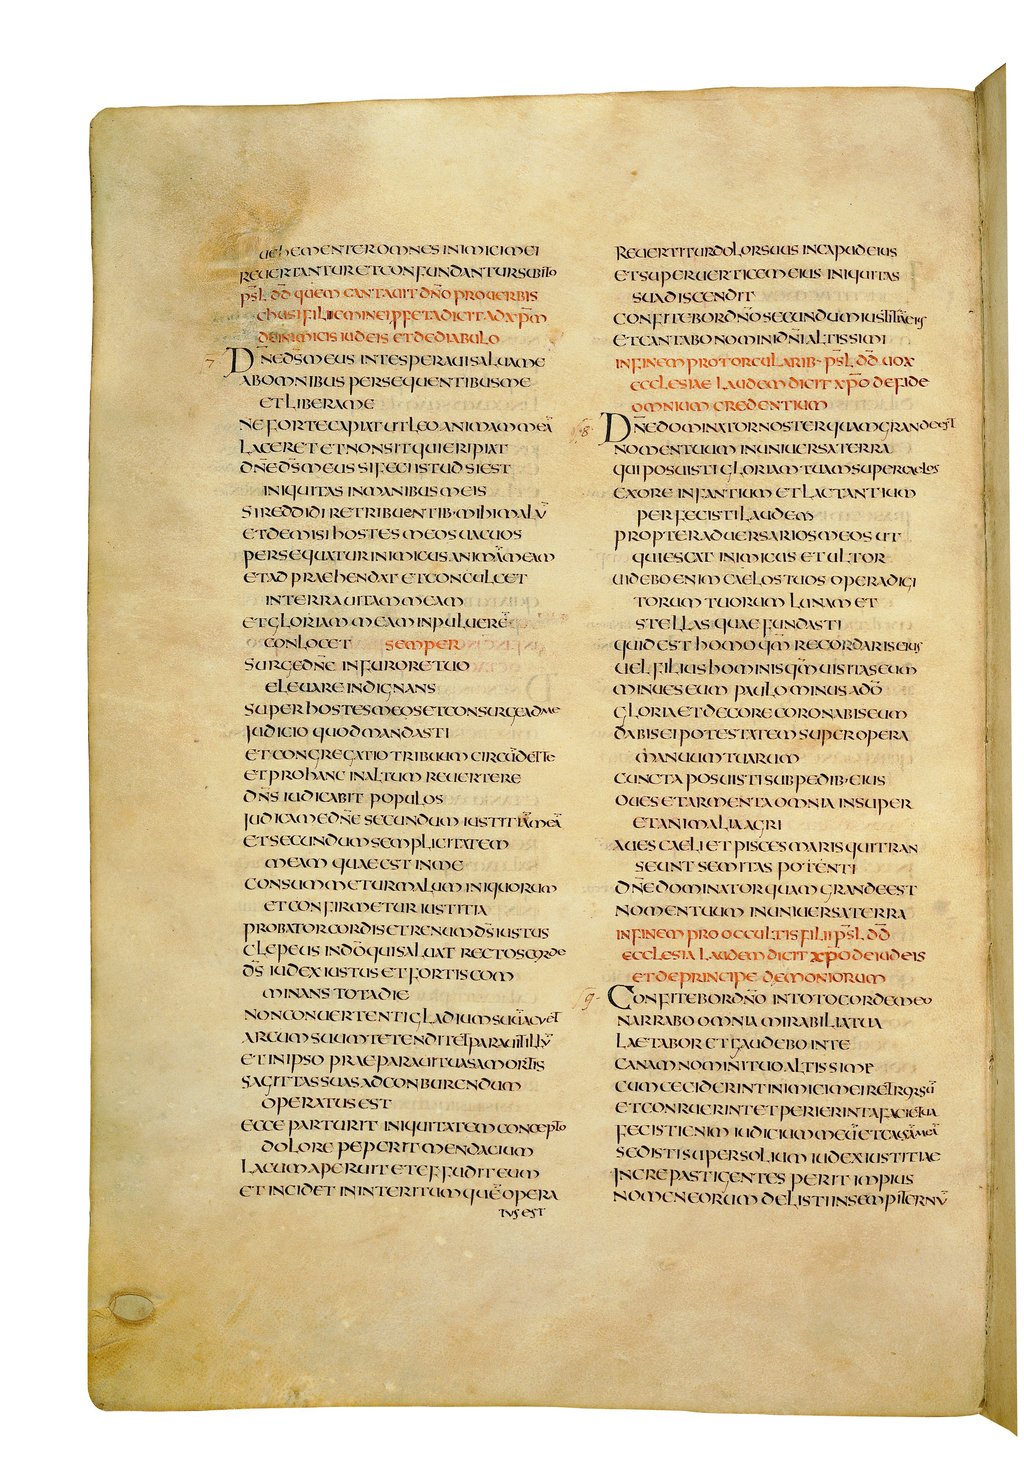 uehementer omnes inimici mei
reuertantur et confundantur subito
psl. dd quem cantauit dno pro uerbis
chusi filii emineippfeta dicit ad xpm
de inimicis iudeis et de diabulo
7 Dne ds meus in te speraui salua me
ab omnibus persequentibus me
et libera me
ne forte capiat ut leo animam meā
laceret et non sit qui eripiat
dne ds meus si feci istud si est
iniquitas in manibus meis
si reddidi retribuentib· mihi malū
et demisi hostes meos uacuos
persequatur inimicus animā meam
et adpraehendat et conculcet
in terra uitam meam
et gloriam meam in puluerē
conlocet semper
surge dne in furore tuo
eleuare indignans
super hostes meos et consurge ad me
judicio quod mandasti
et congregatio tribuum circūdet te
et pro hanc in altum reuertere
dns iudicabit populos
judica me dne secundum iustitiā meā
et secundum semplicitatem
meam quae est in me
consummetur malum iniquorum
et confirmetur iustitia
probator cordis et renum ds iustus
clepeus in dō qui saluat rectos corde
ds iudex iustus et fortis com
minans tota die
non conuertenti gladium suū acuet
arcum suum tetendit et parauit illū
et in ipso praeparauit uasa mortis
sagittas suas ad conburendum
operatus est
ecce parturit iniquitatem concepto
dolore peperit mendacium
lacum aperuit et effudit eum
et incidet in interitum quē opera
tus est
reuertitur dolor suus in caput eius
et super uerticem eius iniquitas
sua discendit
confitebor dno secundum iustitiā eius
et cantabo nomini dni altissimi
in finem pro torcularib· psl. dd uox
ecclesiae laudem dicit xpo de fide
omnium credentium
8· Dne dominator noster quam grande est
nomen tuum in uniuersa terra
qui posuisti gloriam tuam super caelos
ex ore infantium et lactantium
perfecisti laudem
propter aduersarios meos ut
quiescat inimicus et ultor
uidebo enim caelos tuos opera digi
torum tuorum lunam et
stellas quae fundasti
quid est homo qm̄ recordaris eius
uel filius hominis qm̄ uisitas eum
minues eum paulo minus a dō
gloria et decore coronabis eum
dabis ei potestatem super opera
manuum tuarum
cuncta posuisti sub pedib· eius
oues et armenta omnia insuper
et animalia agri
aues caeli et pisces maris qui tran
seunt semitas potenti
dne dominator quam grande est
nomen tuum in uniuersa terra
in finem pro occultis filii psl. dd
ecclesia laudem dicit xpo de iudeis
et de principe demoniorum
9· Confitebor dno in toto corde meo
narrabo omnia mirabilia tua
laetabor et gaudebo in te
canam nomini tuo altissime
cum ceciderint inimici mei retrorsū
et conruerint et perierint a facie tua
fecisti enim iudicium meū et causā meā
sedisti super solium iudex iustitiae
increpasti gentes periit impius
nomen eorum delisti in sempiternū